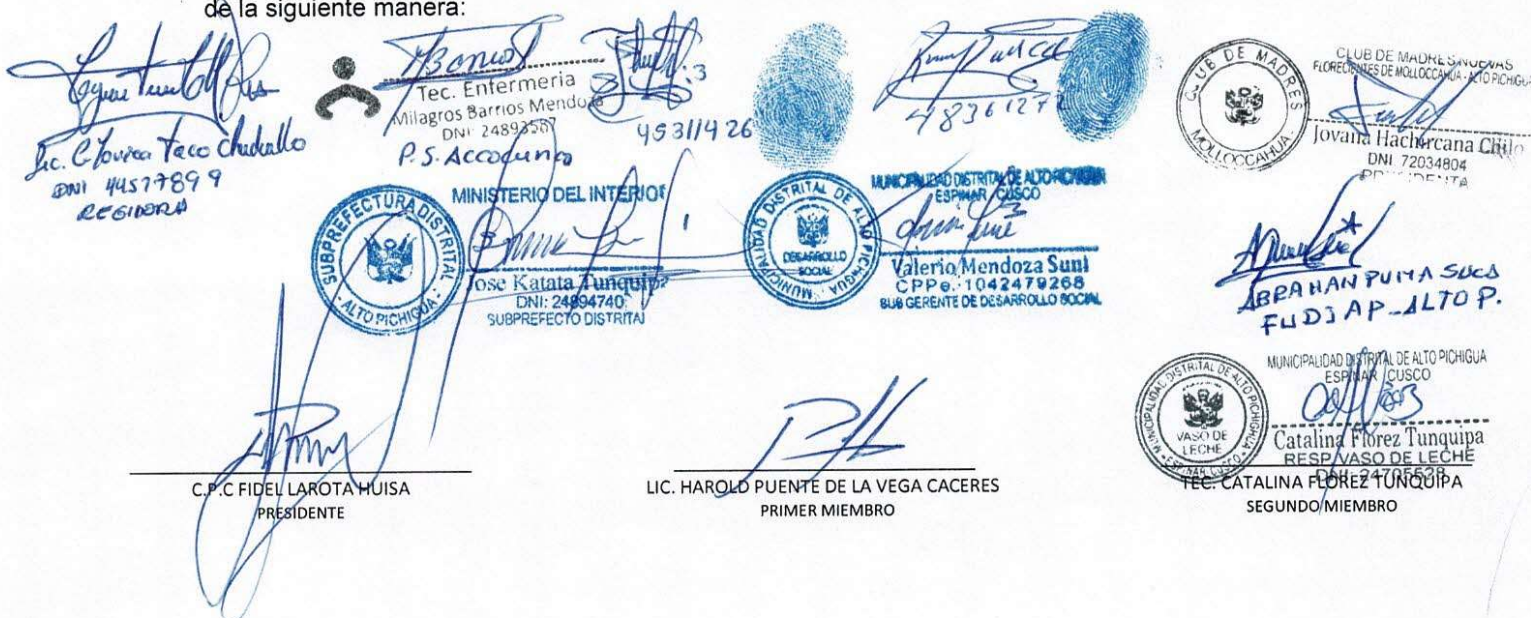 de la siguiente manera:
Lic.
Taco
DNI 44577899
REGIDORA
Tec. Enfermeria
Milagros Barrios Mendoza
DNI: 24893567
P.S. Accocunca
45311426
48361272
CLUB DE MADRES
MOLLOCCAHUA
CLUB DE MADRES NUEVAS
FLORECIENTES DE MOLLOCCAHUA - ALTO PICHIGUA
Jovana Hachircana Chilo
DNI. 72034804
PRESIDENTA
SUBPREFECTURA DISTRITAL
ALTO PICHIGUA
MINISTERIO DEL INTERIOR
Jose Katata Tunquipa
DNI: 24894740
SUBPREFECTO DISTRITAL
MUNICIPALIDAD DISTRITAL DE ALTO PICHIGUA
DESARROLLO
SOCIAL
MUNICIPALIDAD DISTRITAL DE ALTO PICHIGUA
ESPINAR CUSCO
Valerio Mendoza Suni
CPPe. 1042479268
SUB GERENTE DE DESARROLLO SOCIAL
ABRAHAN PUMA SUCA
FUDIAP - ALTO P.
MUNICIPALIDAD DISTRITAL DE ALTO PICHIGUA
ESPINAR CUSCO
VASO DE
LECHE
MUNICIPALIDAD DISTRITAL DE ALTO PICHIGUA
ESPINAR / CUSCO
Catalina Florez Tunquipa
RESP. VASO DE LECHE
DNI: 24705528
C.P.C FIDEL LAROTA HUISA
PRESIDENTE
LIC. HAROLD PUENTE DE LA VEGA CACERES
PRIMER MIEMBRO
TEC. CATALINA FLOREZ TUNQUIPA
SEGUNDO MIEMBRO